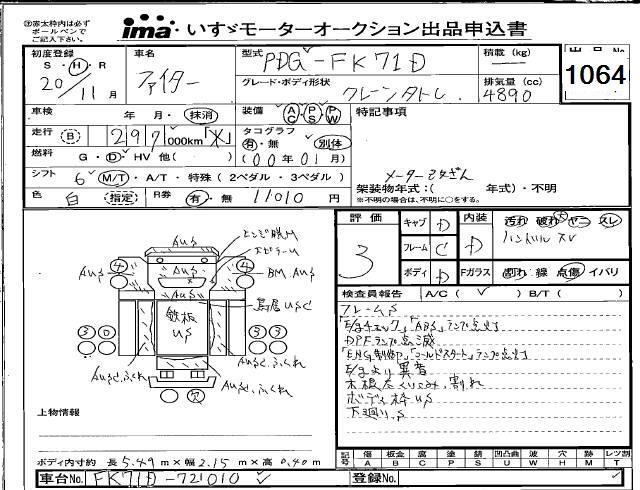 ㊟赤太枠内は必ず
ボールペンで
ご記入下さい。
ima いすゞモーターオークション出品申込書
初度登録
S・H・R
20/11月
車名
ファイター
型式
PDG-FK71D
グレード・ボディ形状
クレーンタトレ
積載 (kg)
排気量 (cc)
4890
出品No.
1064
車検 年・月・抹消
装備 AC PS PW
特記事項
走行 B 297,000km
タコグラフ
有・無 別体
(00年01月)
燃料 G・D・HV 他( )
シフト 6 M/T・A/T・特殊(2ペダル・3ペダル)
メーター改ざん
架装物年式:( 年式)・不明
※不明の場合は、不明に○をする。
色 白 指定 R券 有・無 11010 円
評価
3
キャブ D
フレーム C
ボディ D
内装 D
Fガラス
汚れ 破れ ヤニ スレ
ハンドル スレ
割れ 線 点傷 イバリ
検査員報告 A/C( ✓ ) B/T( )
フレームS
「E/gチェック」「ABS」ランプ点灯
DPFランプ点滅
「ENG制御」「コールドスタート」ランプ点灯
E/gより異音
木根太くいこみ、割れ
ボディ枠US
下廻りS
AUS
AUS
4
4
BM AUS
AUS
鳥居USC
鉄板
US
3 3
AUSC、ふくれ
AUSC、ふくれ
AUSC、ふくれ
欠
上物情報
ボディ内寸約 長 5.49 m×幅 2.15 m×高 0.40 m
記号 傷A 板金B 腐C 塗P 錆S 凹凸曲U 波W 穴H 跡M レツ割T
車台No. FK71D-721010
登録No.